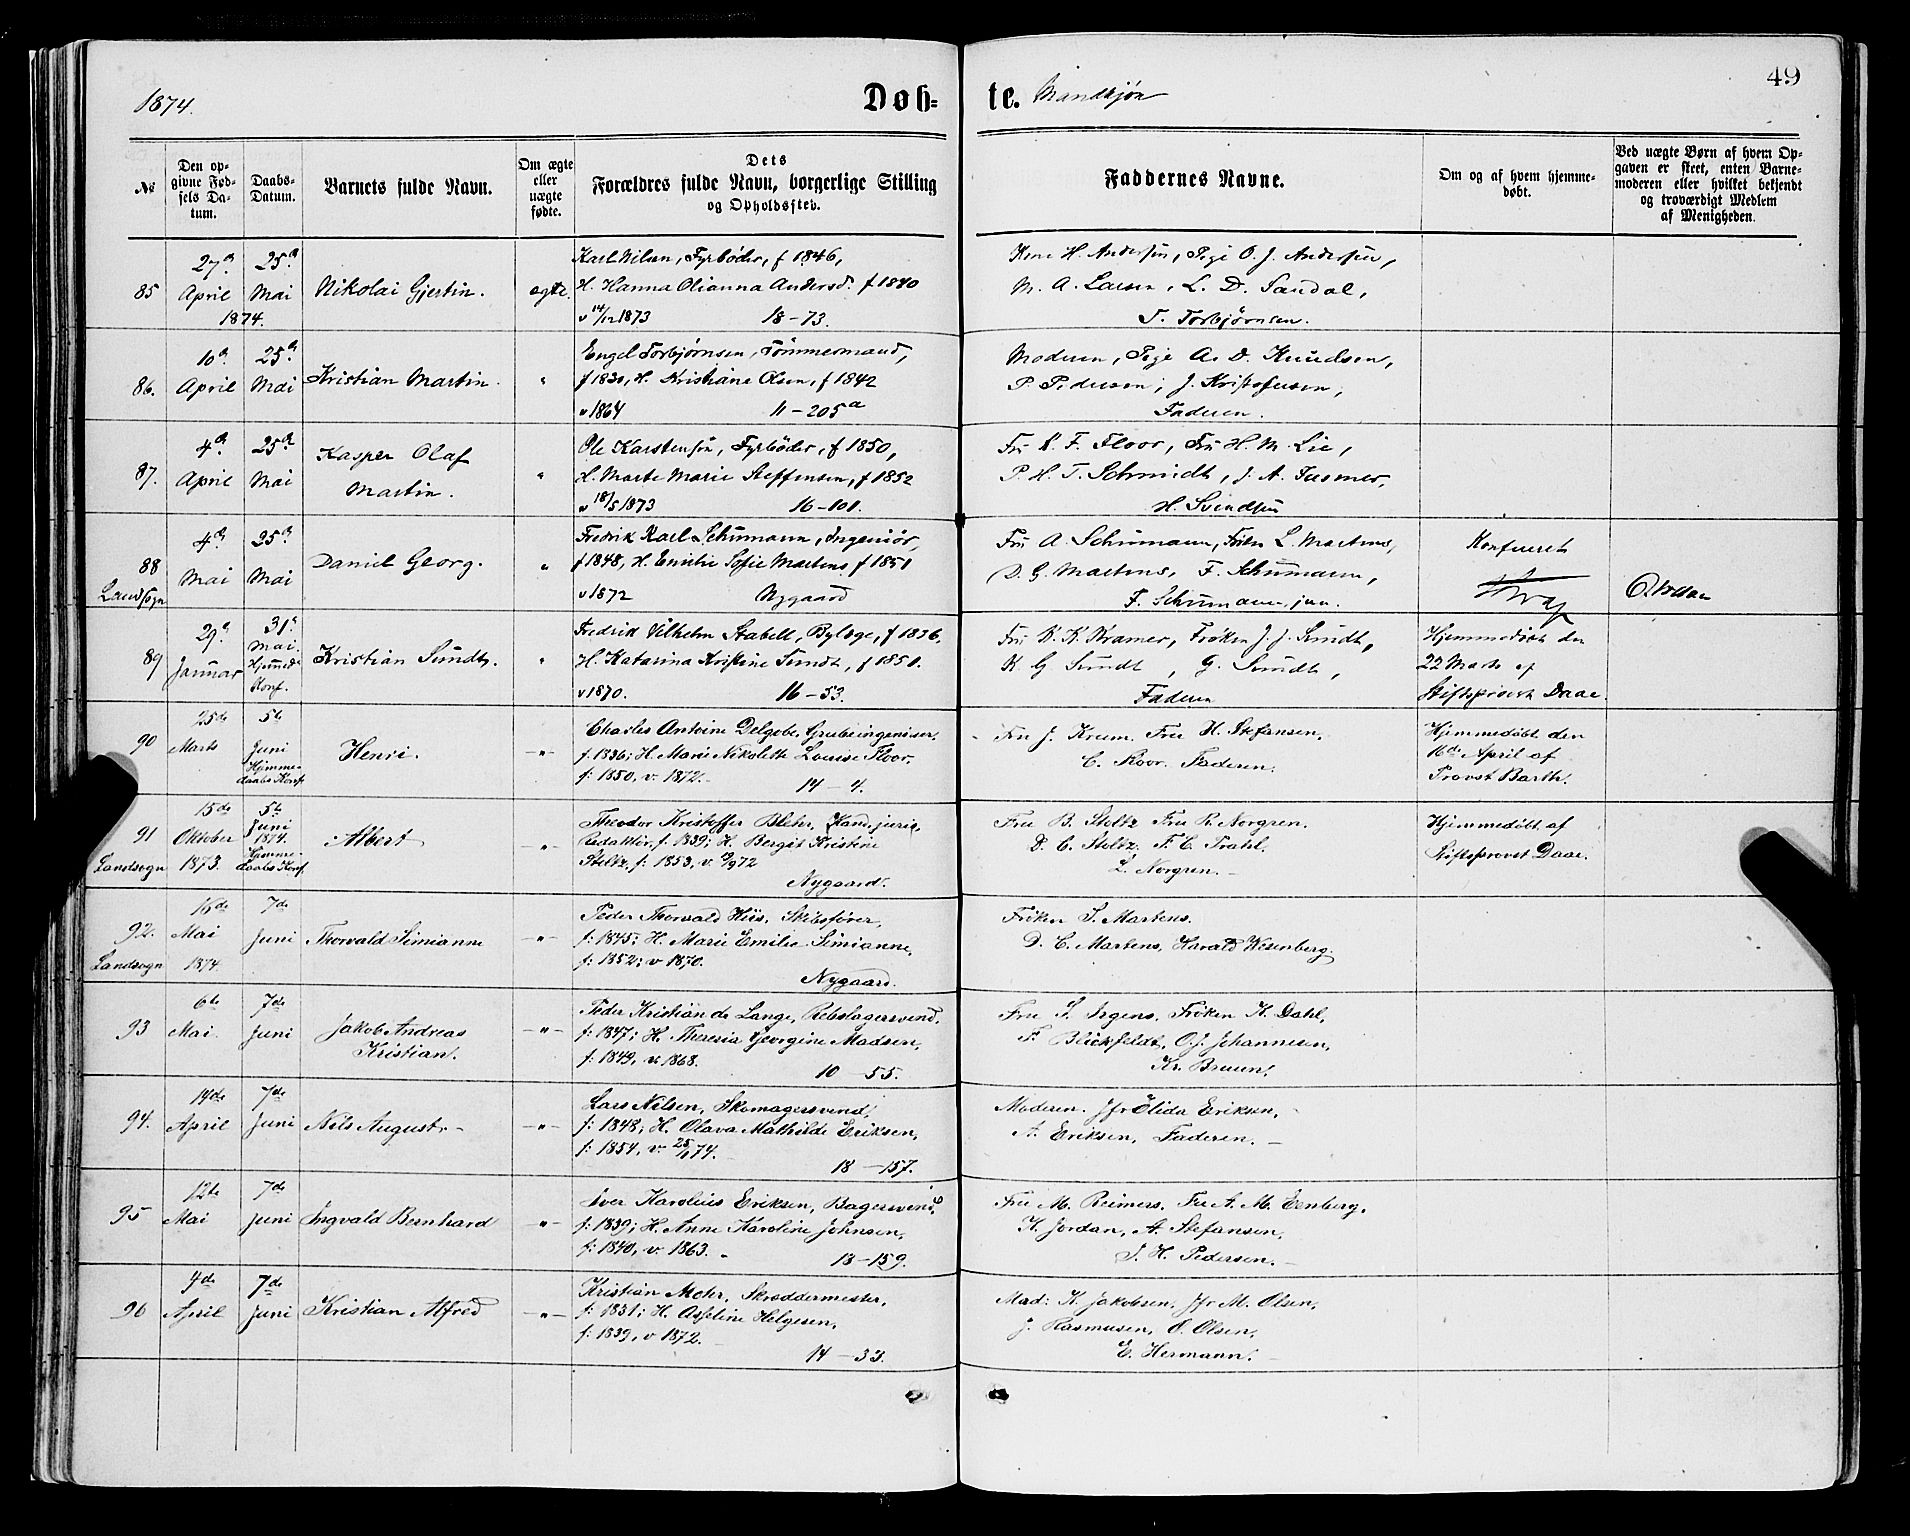 1874.
Døb-
te.
Mandkjøn
49
№
Den op-
givne Fød-
sels Da-
tum.
Daabs-
Datum.
Barnets fulde Navn.
Om ægte
eller
uægte
fødte.
Dets
Forældres fulde Navn, borgerlige Stilling
og Opholdssted.
Faddernes Navne.
Om og af hvem hjemme-
døbt.
Ved uægte Børn af hvem Op-
gaven er skeet, enten Barne-
moderen eller hvilket bekjendt
og troværdigt Medlem
af Menigheden.
85
27de
April
1874.
25de
Mai
Nikolai Gjertin.
ægte.
Karl Nilsen, Fyrbøder, f 1846,
H. Hanna Olianna Andersd. f 1840
v 14/12 1873 18-73.
Kone H. Andersen, Pige O. J. Andersen,
M. A. Larsen, L. D. Sandal,
T. Torbjørnsen.
86.
10de
April
25de
Mai
Kristian Martin.
"
Engel Torbjørnsen, Tømmermand,
f 1830, H. Kristiane Olsen, f 1842
v 1864 11-205a
Moderen, Pige A. D. Knudsen,
P. Pedersen, J. Kristofersen,
Faderen.
87.
4de
April
25de
Mai
Kasper Olaf
Martin.
"
Ole Karstensen, Fyrbøder, f 1850,
H. Marte Marie Steffensen, f 1852
v 18/5 1873 16-101.
Fru K. F. Floor, Fru H. M. Lie,
P. H. T. Schmidt, J. A. Fasmer,
H. Svendsen
88
Landsogn
4de
Mai
25de
Mai
Daniel Georg.
"
Fredrik Karl Schumann, Ingeniør,
f 1848, H. Emilie Sofie Martens f 1851
v 1872 Nygaard
Fru A. Schumann, Frøken L. Martens,
D. G. Martens, F. Schumann,
F. Schumann jun.
Konfereret
89
29de
Januar
31te
Mai.
Hjemmed.
Konf.
Kristian Sundt.
"
Fredrik Vilhelm Stabell, Bylæge, f 1836,
H. Katarina Kristine Sundt, f 1851.
v 1870. 16-53.
Fru K. K. Kramer, Frøken J. J. Sundt,
K. G. Sundt, G. Sundt,
Faderen
Hjemmedøbt den
22 Marts af
Stiftsprovst Daae.
90
25de
Marts
5te
Juni
Hjemme-
daabs Konf.
Henri.
-"-
Charles Antoine Delgobe, Grubeingeniør,
f. 1836; H. Marie Nikolette Louise Floor,
f: 1850, v. 1872. 14-4.
Fru J. Krum. Fru H. Stefansen,
C. Floor. Faderen.
Hjemmedøbt den
16de April af
Provst Barth.
91
Landsogn
15de
Oktober
1873.
5te
Juni
1874.
Hjemme-
daabs Konf.
Albert
-"-
Theodor Kristoffer Bleher, Kand. juris,
Redaktør, f. 1839; H. Bergit Kristine
Stoltz, f: 1853, v. 19/9 72
Nygaard.
Fru B. Stoltz Fru R. Norgren.
D. C. Stoltz. F. C. Trahl.
L. Norgren.
Hjemmedøbt af
Stiftsprovst Daae.
92.
Landsogn
16de
Mai
1874
7de
Juni
Thorvald Simianne
-"-
Peder Thorvald Hiis, Skibsfører,
f: 1845; H. Marie Emilie Simianne,
f: 1852; v 1870.
Nygaard.
Frøken S. Martens.
D. C. Martens, Harald Wesenberg.
93
6te
Mai.
7de
Juni
Jakob Andreas
Kristian.
-"-
Peder Kristian de Lange, Rebslagersvend,
f: 1847; H. Theresia Georgine Madsen,
f: 1849, v: 1868. 10-55.
Fru S. Irgens. Frøken K. Dahl,
F. Blickfeldt, O. J. Johannesen,
Kr. Bruun.
94.
14de
April
7de
Juni
Nels August
-"-
Lars Nilsen, Skomagersvend,
f: 1848; H. Olava Mathilde Eriksen,
f: 1854, v: 25/1 74. 18-157.
Moderen. Jfr Elida Eriksen,
A. Eriksen, Faderen.
95
12te
Mai
7de
Juni
Ingvald Bernhard
-"-
Iver Karolius Eriksen, Bagersvend,
f: 1839; H. Anne Karoline Johnsen,
f: 1840, v. 1863. 13-159.
Fru M. Reimers. Fru A. M. Ernberg.
K. Jordan, A. Stefansen,
J. H. Pedersen.
96
4de
April
7de
Juni
Kristian Alfred
-"-
Kristian Mohr, Skræddermester,
f: 1831; H. Asseline Helgesen,
f: 1839, v 1872. 14-33.
Mad: K. Jakobsen, Jfr M. Olsen,
J. Rasmusen, O. Olsen,
E. Hermann.